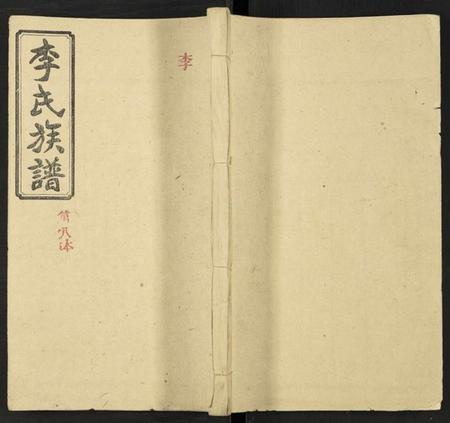 李氏族譜
李
第八本